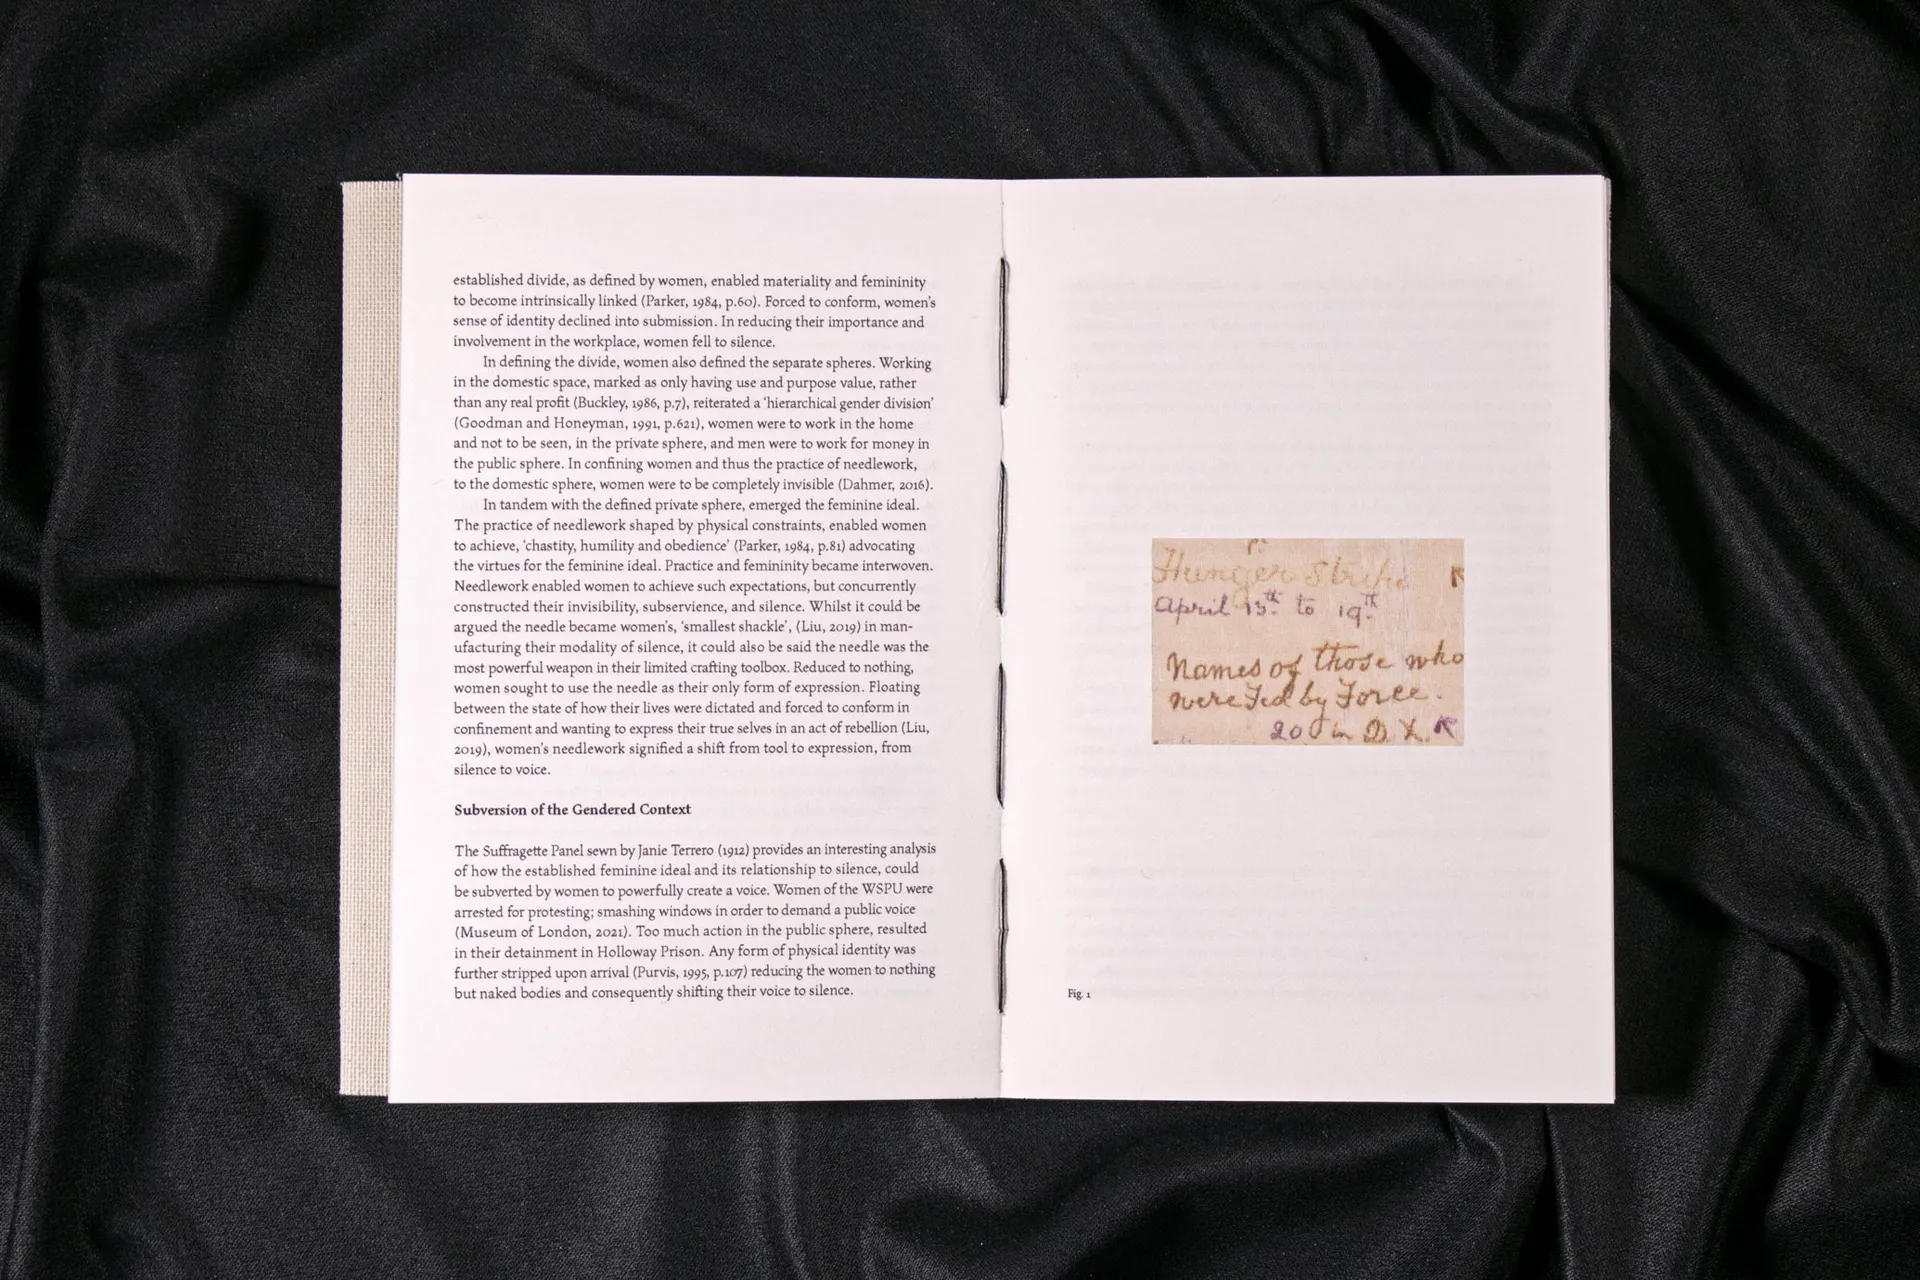 established divide, as defined by women, enabled materiality and femininity
to become intrinsically linked (Parker, 1984, p.60). Forced to conform, women's
sense of identity declined into submission. In reducing their importance and
involvement in the workplace, women fell to silence.
In defining the divide, women also defined the separate spheres. Working
in the domestic space, marked as only having use and purpose value, rather
than any real profit (Buckley, 1986, p.7), reiterated a 'hierarchical gender division'
(Goodman and Honeyman, 1991, p.621), women were to work in the home
and not to be seen, in the private sphere, and men were to work for money in
the public sphere. In confining women and thus the practice of needlework,
to the domestic sphere, women were to be completely invisible (Dahmer, 2016).
In tandem with the defined private sphere, emerged the feminine ideal.
The practice of needlework shaped by physical constraints, enabled women
to achieve, 'chastity, humility and obedience' (Parker, 1984, p.81) advocating
the virtues for the feminine ideal. Practice and femininity became interwoven.
Needlework enabled women to achieve such expectations, but concurrently
constructed their invisibility, subservience, and silence. Whilst it could be
argued the needle became women's, 'smallest shackle', (Liu, 2019) in man-
ufacturing their modality of silence, it could also be said the needle was the
most powerful weapon in their limited crafting toolbox. Reduced to nothing,
women sought to use the needle as their only form of expression. Floating
between the state of how their lives were dictated and forced to conform in
confinement and wanting to express their true selves in an act of rebellion (Liu,
2019), women's needlework signified a shift from tool to expression, from
silence to voice.
Subversion of the Gendered Context
The Suffragette Panel sewn by Janie Terrero (1912) provides an interesting analysis
of how the established feminine ideal and its relationship to silence, could
be subverted by women to powerfully create a voice. Women of the WSPU were
arrested for protesting; smashing windows in order to demand a public voice
(Museum of London, 2021). Too much action in the public sphere, resulted
in their detainment in Holloway Prison. Any form of physical identity was
further stripped upon arrival (Purvis, 1995, p.107) reducing the women to nothing
but naked bodies and consequently shifting their voice to silence.
Hunger Strike
April 13th to 19th
Names of those who
were Fed by Force.
20 in D. X.
Fig. 1